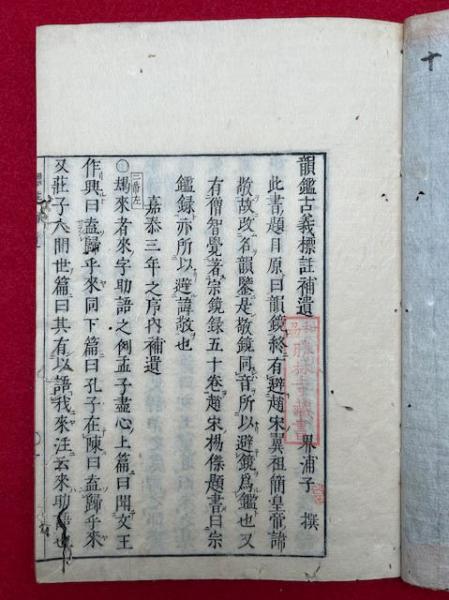 十
韻鑑古義標註補遺
界浦子 撰
此書題目原曰韻鏡終有避趙宋翼祖簡皇帝諱
敬故改名韻鑒是敬鏡同音所以避鏡爲鑑也又
有僧智覺著宗鏡錄五十卷趙宋楊傑題書曰宗
鑑録亦所以避諱敬也
嘉泰三年之序內補遺
三張左
○竭來者來字助語之例孟子盡心上篇曰聞文王
作興曰盍歸乎來同下篇曰孔子在陳曰盍歸乎來
又莊子人間世篇曰其有以語我來注云來助語也